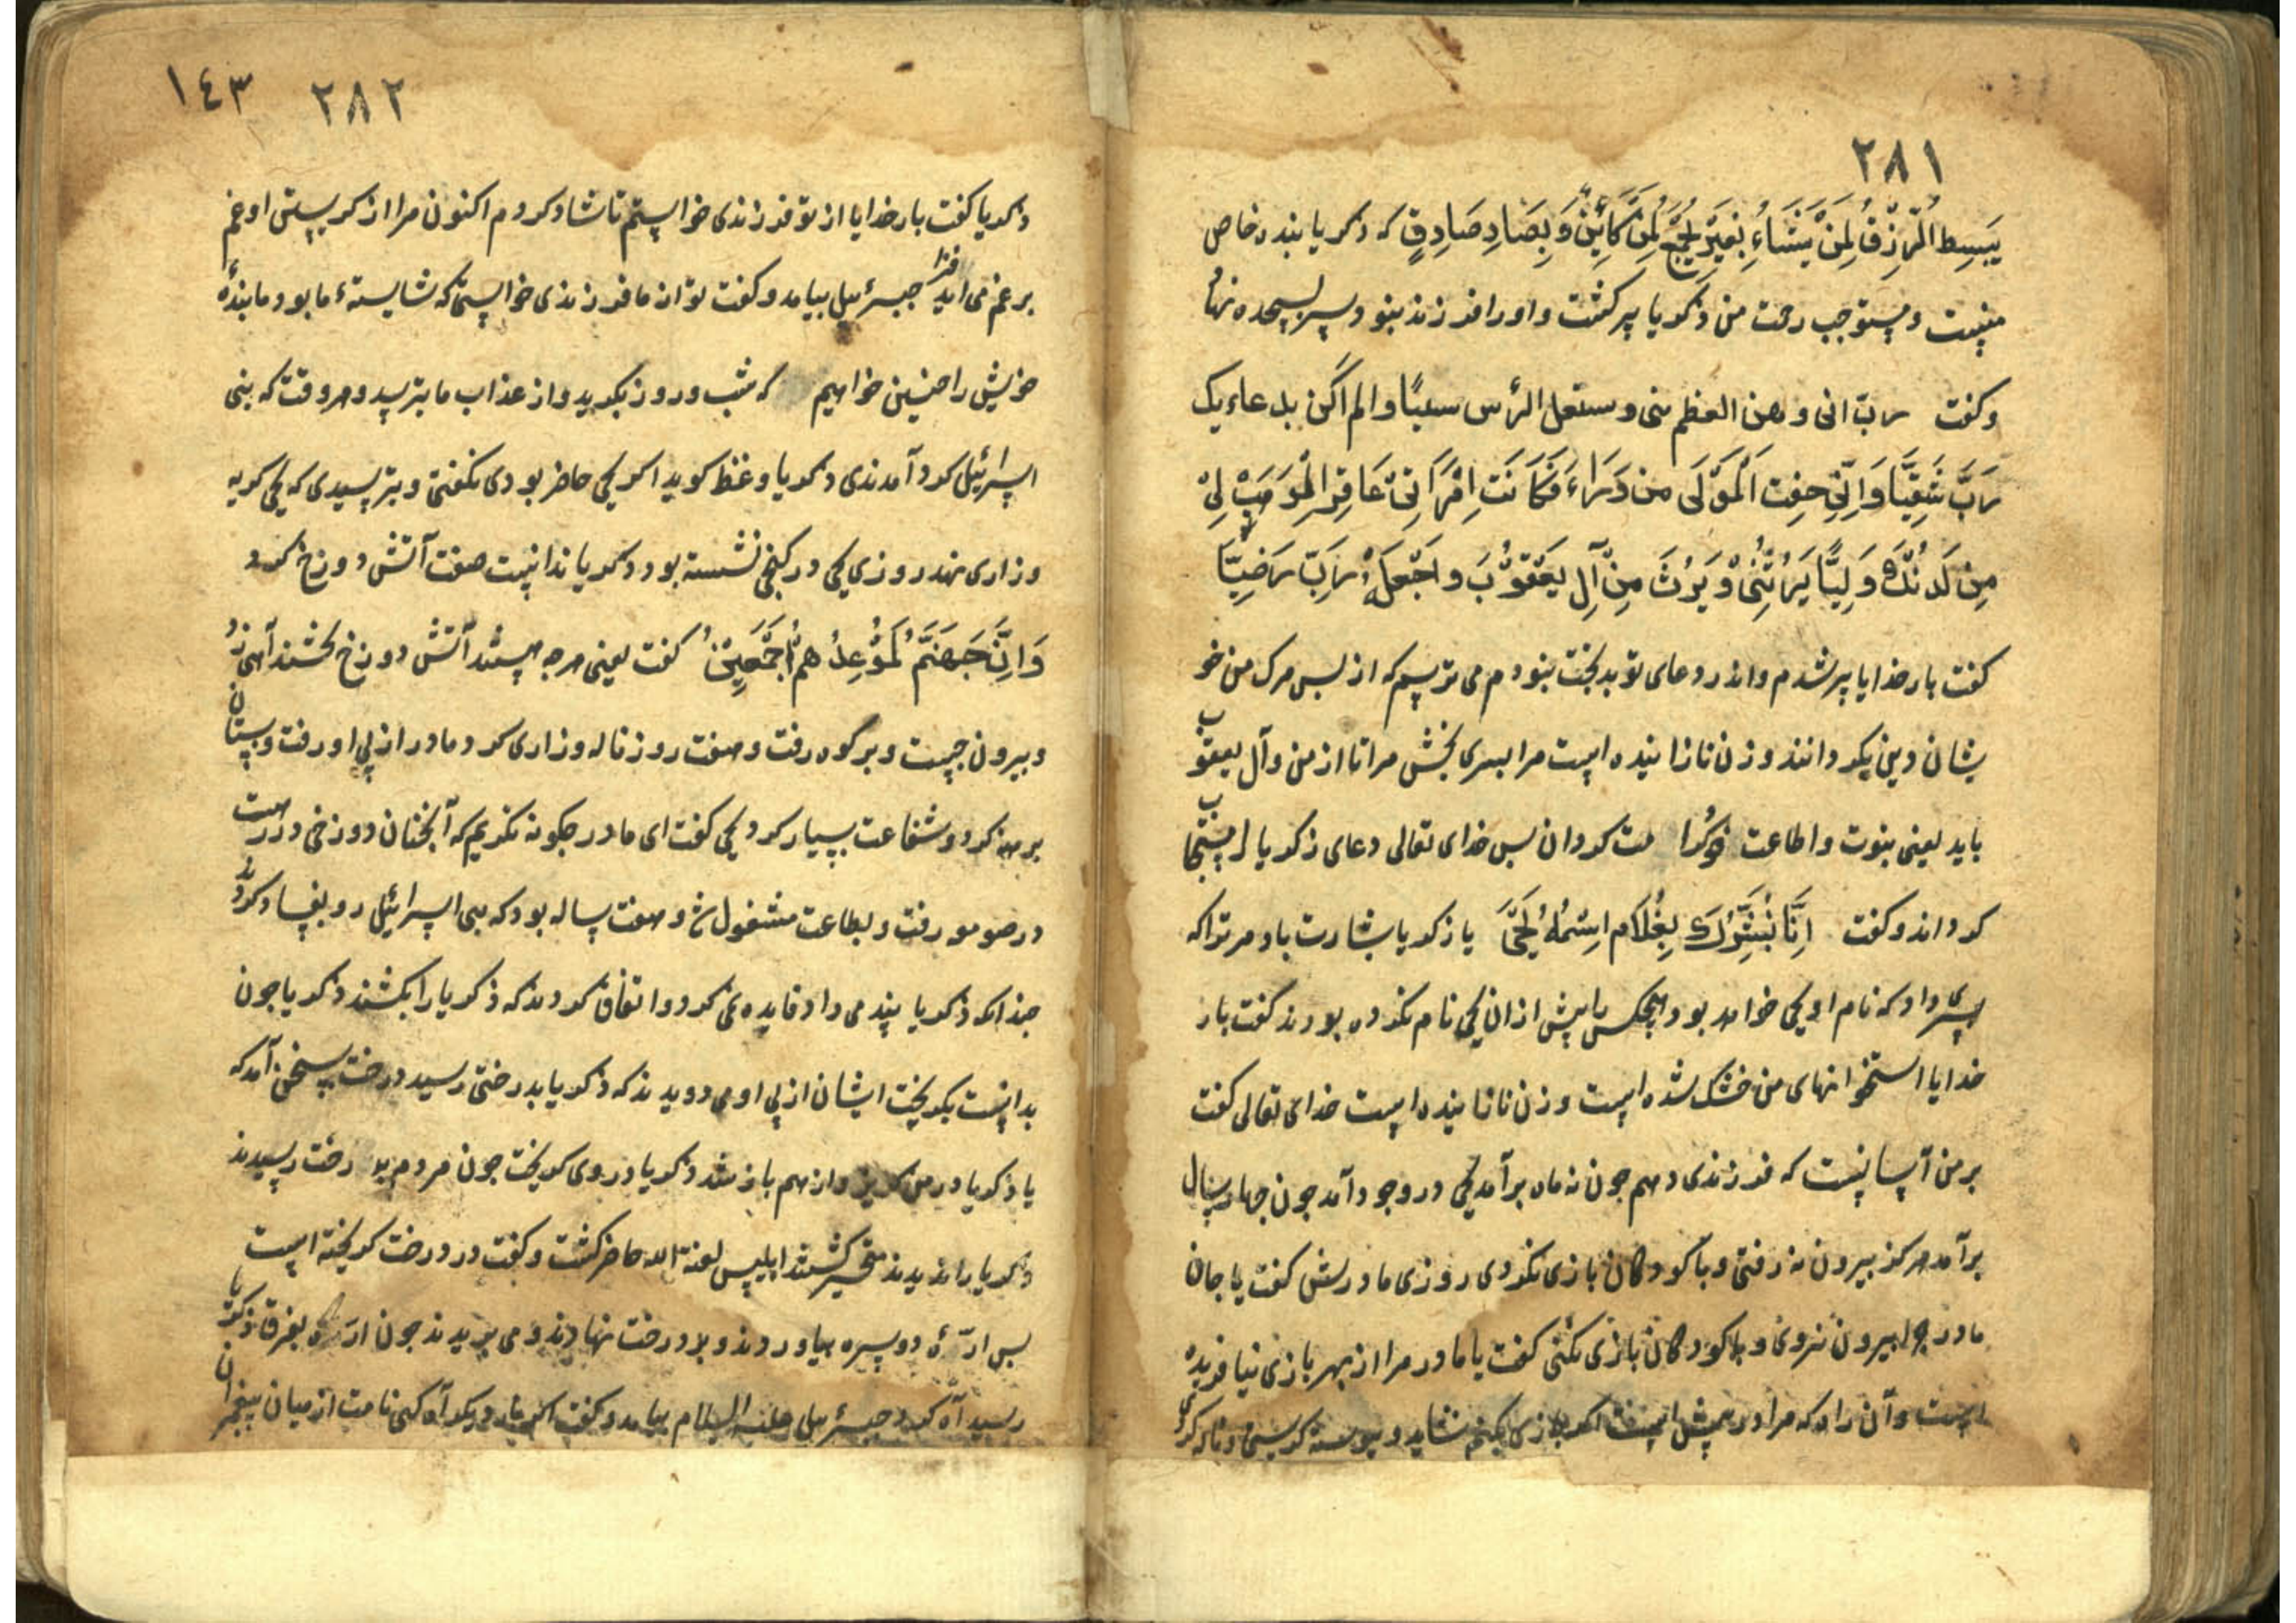 ٢٨١
يَبسِط الرّزقُ لِمَنْ يَشَاءُ بغَيرِ كَائِنٍ وَبِصَادِ صَادِقٍ که ذکریا بنده خاص
منیست ومستوجب رحمت من ذکریا پیر کشت واورا فرزند نبود سر بسجده نهاد
وکفت رب انی وهن العظم منی وستعل الرأس سیبًا والم اکن بدعاءیک
رَبَّ شَقِیَّا وَاِنّی خِفت اَلمَوَلَی من وَرَاءَ فَکَانَت اِمْرَاتِی عَاقِر المو هَبْ لِیْ
مِن لَدُنْكَ وَلِیًّا یَرِثُنِی وَیَرِثَ مِنْ آلِ یَعْقوُبَ وَاجْعَلْهُ رَبّ رَضِیّا
کفت بار خدایا پیر شدم واندر دعای تو بدبخت نبودم می ترسم که از پس مرک من خو
یشان دین یکردانند وزن نازاینده است مرا پسری بخش مرا تا از من وآل یعقوب
باید یعنی نبوت واطاعت مت کردان پس خدای تعالی دعای زکریا را مستجاب
کرداند وکفت اِنَّا نُبَشِّرُكَ بِغُلَامِ اسْمُهُ یَحْیَ یا زکریا بشارت باد مر ترا که
پسری داد که نام او یحی خواهد بود وهیچکس را پیش ازان یحی نام نکرده بودند کفت بار
خدایا استخوانهای من خشک شده است وزن نازاینده است خدای تعالی کفت
بر من آسانست که فرزندی دهم جون نه ماه برآمد یحی در وجود آمد جون جهار سال
برآمد هرکز بیرون نه رفتی وبا کودکان بازی نکردی روزی مادرش کفت یا جان
مادر جرا بیرون نروی وبا کودکان بازی نکنی کفت یا مادر مرا از بهر بازی نیافریده
است وآن راه که مرا در پیش است اکر بازی بکنم نشاید وپیوسته کریستی وناله کردی
١٤٣ ٢٨٢
ذکریا کفت بار خدایا از تو فرزندی خواستم تا شاد کردم اکنون مرا از کریستی او غم
بر غم می افزاید جبرئیل بیامد وکفت تو از ما فرزندی خواستی که شایستهٔ ما بود ما بندهٔ
خویش را جنین خواهیم که شب وروز بکرید واز عذاب ما بترسد وهر وقت که بنی
اسرائیل کرد آمدندی ذکریا وعظ کوید اکر یحی حاضر بودی نکفتی وبترسیدی که یحی کریه
وزاری نهد روزی یحی در کنجی نشسته بود ذکریا ندانست صفت آتش دوزخ کرد
وَاِنَّ جَهَنَّمَ لَمَوْعِدُ هُمْ اَجْمَعِیْنْ کفت یعنی هرجه هستند آتش دوزخ کشند آهی زد
وبیرون جست وبر کوه رفت وهفت روز ناله وزاری کرد ومادر از پی او رفت وپستان
برهنه کرد وشفاعت بسیار کرد یحی کفت ای مادر جکونه نکریم که آنجنان دوزخی در راهست
در صومو رفت وبطاعت مشغول شد وهفت ساله بود که بنی اسرائیل رو بفساد کردند
جندانکه ذکریا پند می داد فایده نمی کرد واتفاق کردند که ذکریا را بکشند ذکریا جون
بدانست بکریخت ایشان از پی او می دویدند که ذکریا بدرختی رسید درخت بسخن آمد که
یا ذکریا در من کریز واز هم باز شد ذکریا در وی کریخت جون مردم درخت رسیدند
ذکریا را ندیدند متحیر کشتند ابلیس لعنة الله حاضر کشت وکفت در درخت کریخته است
پس ارّهٔ دو سره بیاوردند وبر درخت نهادند ومی بریدند جون ارّه بفرق ذکریا
رسید آه کرد جبرئیل علیه السلام بیامد وکفت دیکر آه کنی نامت از میان پیغمبران